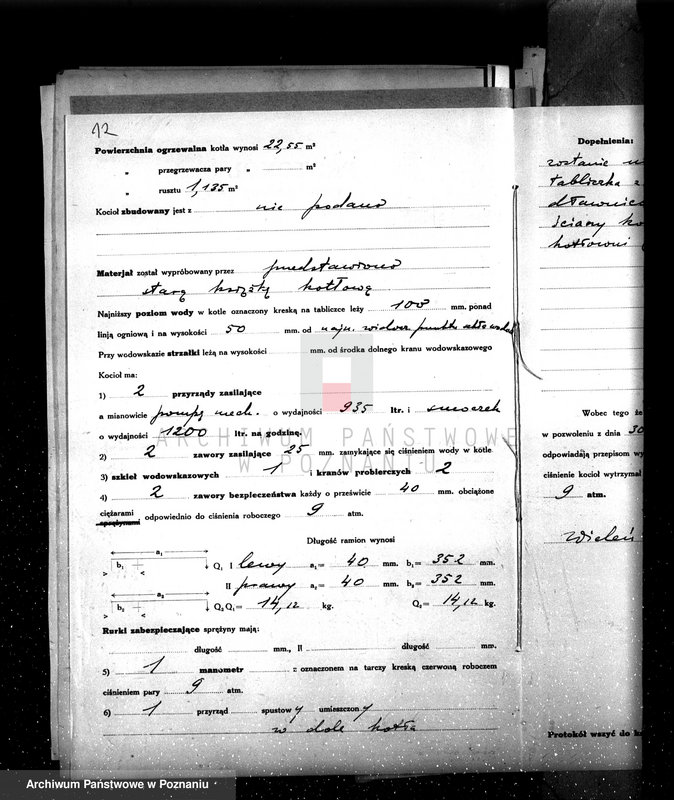 12
Powierzchnia ogrzewalna kotła wynosi 22,55 m²
„ przegrzewacza pary „ m²
„ rusztu 1,135 m²
Kocioł zbudowany jest z nie podano
Materjał został wypróbowany przez przedstawiono
starą książkę kotłową
Najniższy poziom wody w kotle oznaczony kreską na tabliczce leży 100 mm. ponad
linją ogniową i na wysokości 50 mm. od najn. widocz. punktu
Przy wodowskazie strzałki leżą na wysokości mm. od środka dolnego kranu wodowskazowego
Kocioł ma:
1) 2 przyrządy zasilające
a mianowicie pompę mech. o wydajności 935 ltr. i smoczek
o wydajności 1200 ltr. na godzinę.
2) 2 zawory zasilające 25 mm. zamykające się ciśnieniem wody w kotle
3) szkieł wodowskazowych 1 i kranów probierczych 2
4) 2 zawory bezpieczeństwa każdy o prześwicie 40 mm. obciążone
ciężarami
sprężynami odpowiednio do ciśnienia roboczego 9 atm.
Długość ramion wynosi
a₁ b₁ Q₁ I lewy a₁= 40 mm. b₁= 352 mm.
II prawy a₂= 40 mm. b₂= 352 mm.
a₂ b₂ Q₂ Q₁= 14,12 kg. Q₂= 14,12 kg.
Rurki zabezpieczające sprężyny mają:
długość mm., II długość mm.
5) 1 manometr z oznaczonem na tarczy kreską czerwoną roboczem
ciśnieniem pary 9 atm.
6) 1 przyrząd spustowy umieszczony
w dole kotła
Dopełnienia:
zostanie
tabliczka z
dławnice
ściany ko
kotłowni
Wobec tego że
w pozwoleniu z dnia 30
odpowiadają przepisom wy
ciśnienie kocioł wytrzymał
9 atm.
Wieleń
Protokół wszyć do k
ARCHIWUM PAŃSTWOWE
W POZNANIU
Archiwum Państwowe w Poznaniu